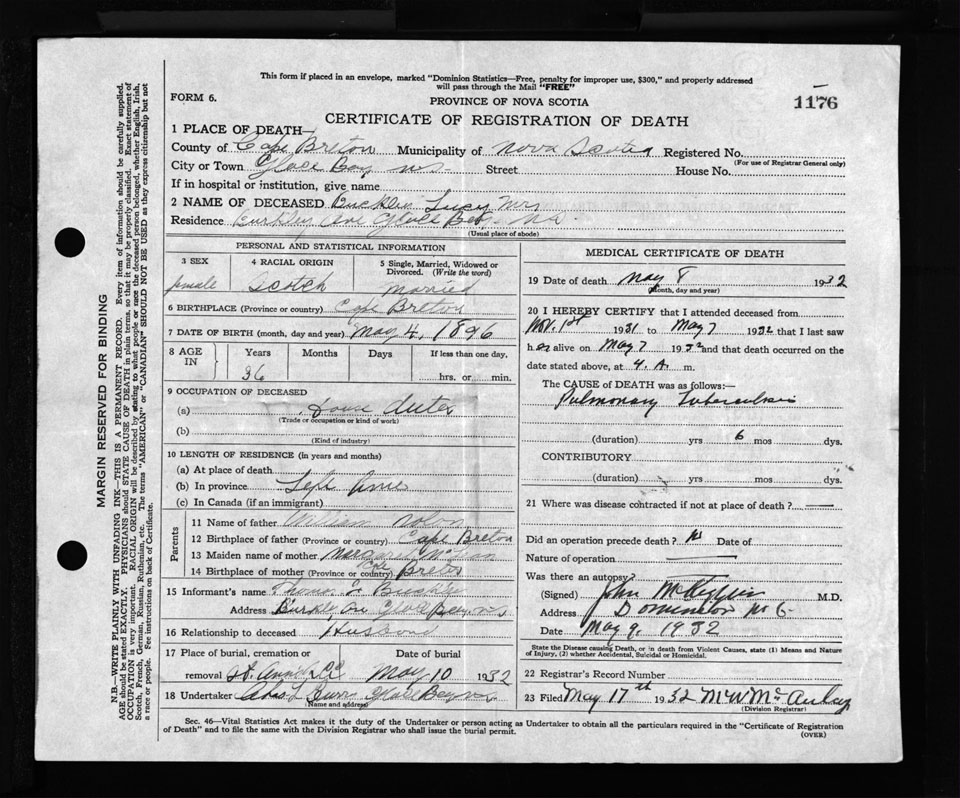 This form if placed in an envelope, marked "Dominion Statistics—Free, penalty for improper use, $300," and properly addressed
will pass through the Mail "FREE"
FORM 6.
PROVINCE OF NOVA SCOTIA
1176
CERTIFICATE OF REGISTRATION OF DEATH
1 PLACE OF DEATH—
County of Cape Breton Municipality of Nova Scotia Registered No.
(For use of Registrar General only)
City or Town Glace Bay Street House No.
If in hospital or institution, give name
2 NAME OF DECEASED Lucy Mrs
Residence Ave Glace Bay
(Usual place of abode)
PERSONAL AND STATISTICAL INFORMATION
3 SEX 4 RACIAL ORIGIN 5 Single, Married, Widowed or Divorced. (Write the word)
female Scotch married
6 BIRTHPLACE (Province or country) Cape Breton
7 DATE OF BIRTH (month, day and year) May 4, 1896
8 AGE IN Years Months Days If less than one day,
36 hrs. or min.
9 OCCUPATION OF DECEASED
(a)
(Trade or occupation or kind of work)
(b)
(Kind of industry)
10 LENGTH OF RESIDENCE (in years and months)
(a) At place of death
(b) In province
(c) In Canada (if an immigrant)
Parents
11 Name of father William
12 Birthplace of father (Province or country) Cape Breton
13 Maiden name of mother Margaret
14 Birthplace of mother (Province or country) Cape Breton
15 Informant's name
Address Glace Bay
16 Relationship to deceased Husband
17 Place of burial, cremation or removal Date of burial
St. May 10 1932
18 Undertaker Glace Bay
(Name and address)
MEDICAL CERTIFICATE OF DEATH
19 Date of death May 8 1932
(Month, day and year)
20 I HEREBY CERTIFY that I attended deceased from
Nov. 1st 1931 to May 7 1932 that I last saw
her alive on May 7 1932 and that death occurred on the
date stated above, at 4. A. m.
The CAUSE of DEATH was as follows:—
Pulmonary Tuberculosis
(duration) yrs 6 mos dys.
CONTRIBUTORY
(duration) yrs mos dys.
21 Where was disease contracted if not at place of death?
Did an operation precede death? No Date of
Nature of operation
Was there an autopsy?
(Signed) John M.D.
Address Dominion No 6
Date May 9. 1932
State the Disease causing Death, or in death from Violent Causes, state (1) Means and Nature
of Injury, (2) whether Accidental, Suicidal or Homicidal.
22 Registrar's Record Number
23 Filed May 17th 1932
(Division Registrar)
Sec. 46—Vital Statistics Act makes it the duty of the Undertaker or person acting as Undertaker to obtain all the particulars required in the "Certificate of Registration
of Death" and to file the same with the Division Registrar who shall issue the burial permit.
(OVER)
MARGIN RESERVED FOR BINDING
N.B.—WRITE PLAINLY WITH UNFADING INK—THIS IS A PERMANENT RECORD. Every item of information should be carefully supplied.
AGE should be stated EXACTLY. PHYSICIANS should STATE CAUSE OF DEATH in plain terms, so that it may be properly classified. Exact statement of
OCCUPATION is very important. RACIAL ORIGIN will be described by stating to what people or race the deceased person belonged, whether English, Irish,
Scotch, French, German, Russian, Ruthenian, etc. The terms "AMERICAN" or "CANADIAN" SHOULD NOT BE USED as they express citizenship but not
a race or people. See instructions on back of Certificate.